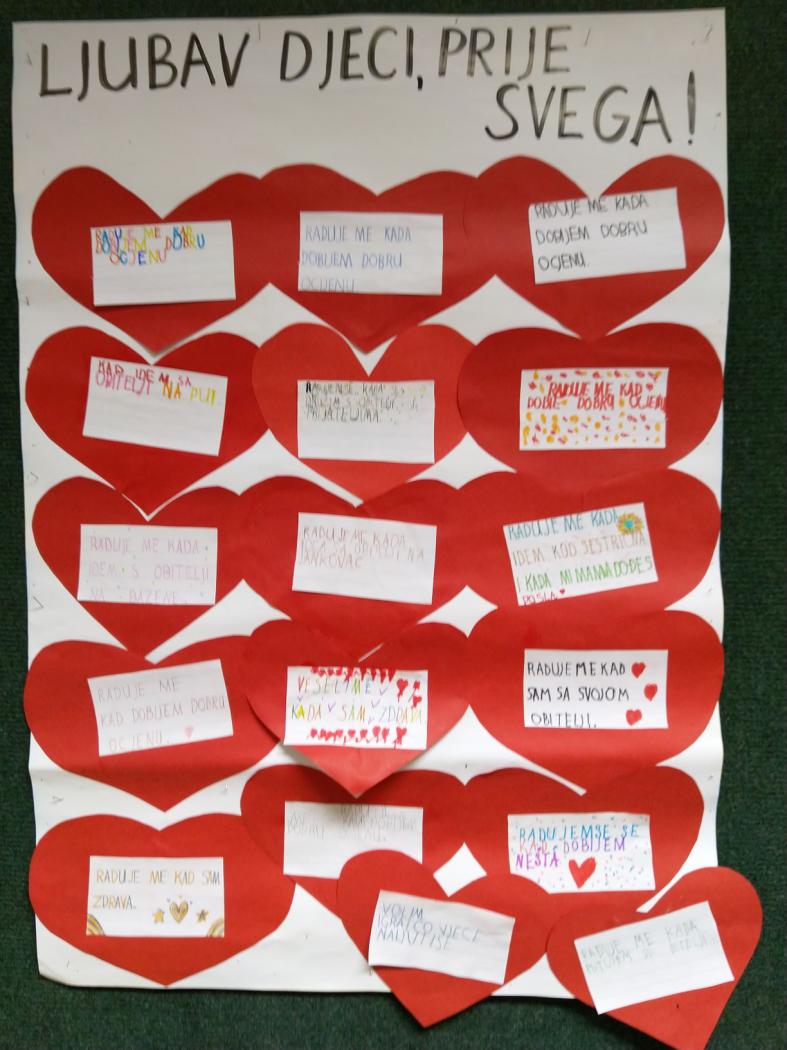 LJUBAV DJECI, PRIJE
SVEGA!
RADUJE ME KAD
DOBIJEM DOBRU
OCJENU
RADUJE ME KADA
DOBIJEM DOBRU
OCIJENU.
RADUJE ME KADA
DOBIJEM DOBRU
OCJENU.
KAD IDEM SA
OBITELJI NA PUT.
OBITELJI
PRIJATELJIMA.
RADUJE ME KAD
DOBIJE DOBRU OCJENU
RADUJE ME KADA
IDEM S OBITELJI
NA BAZENE.
RADUJE ME KADA
OBITELJI NA
JANKOVAC
RADUJE ME KADA
IDEM KOD SESTRIČNA
I KADA MI MAMA DOĐE S
POSLA.
RADUJE ME
KAD DOBIJEM DOBRU
OCJENU.
VESELI ME
KADA SAM ZDRAVA
RADUJE ME KAD
SAM SA SVOJOM
OBITELJI.
RADUJE
DOBRU
RADUJEMSE SE
KAD DOBIJEM
NEŠTA
RADUJE ME KAD SAM
ZDRAVA.
VOLIM
IGRAT ČOVJEČE
NALJUTI SE
RADUJE ME KADA
PUTUJEM